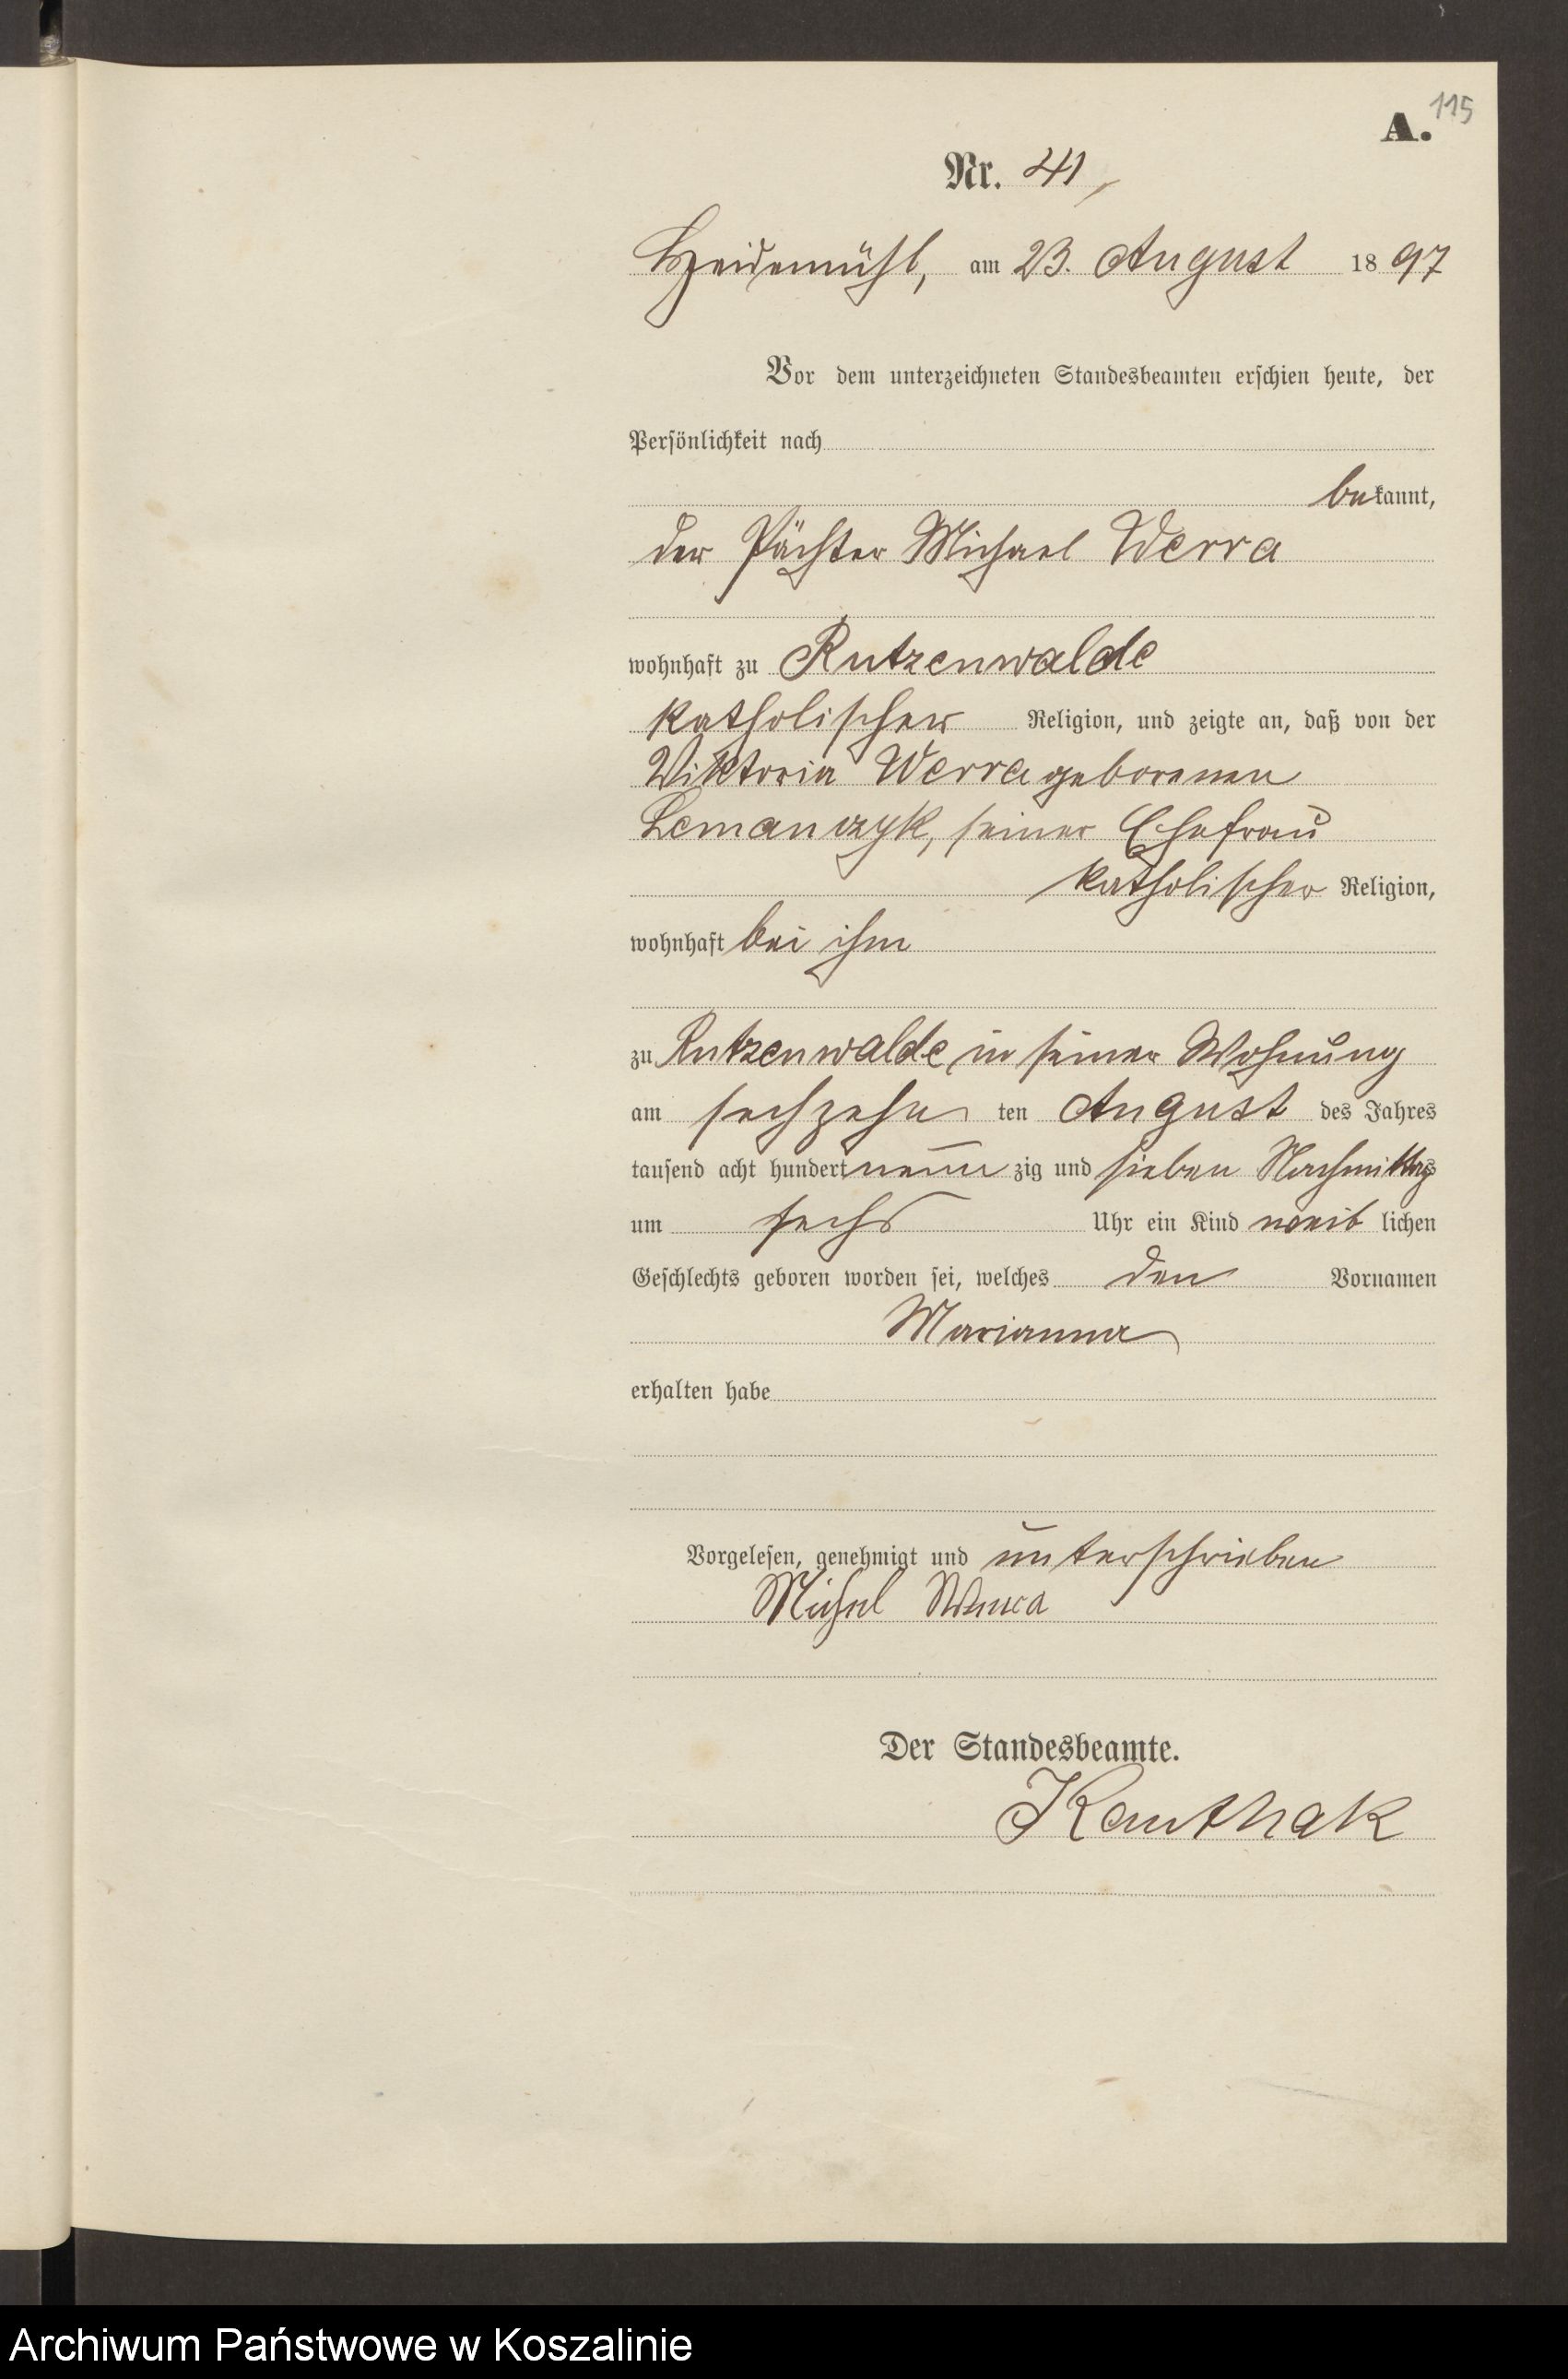 115
A.
Nr. 41,
Heidemühl, am 23. August 1897
Vor dem unterzeichneten Standesbeamten erschien heute, der
Persönlichkeit nach
bekannt,
der Pächter Michael Werra
wohnhaft zu Rutzenwalde
katholischer Religion, und zeigte an, daß von der
Wiktoria Werra geborenen
Lemanczyk, seiner Ehefrau
katholischer Religion,
wohnhaft bei ihm
zu Rutzenwalde in seiner Wohnung
am sechzehn ten August des Jahres
tausend acht hundert neun zig und sieben Nachmittags
um sechs Uhr ein Kind weib lichen
Geschlechts geboren worden sei, welches den Vornamen
Marianna
erhalten habe
Vorgelesen, genehmigt und unterschrieben
Michel Werra
Der Standesbeamte.
Kauthak
Archiwum Państwowe w Koszalinie